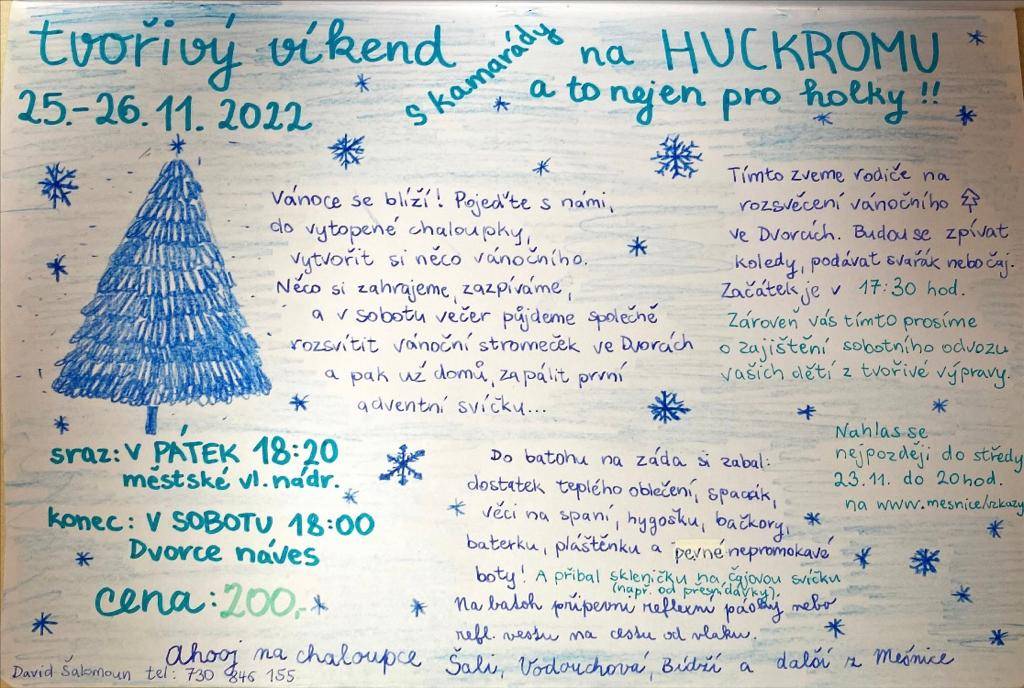 tvořivý víkend s kamarády na HUCKROMU
25.-26.11.2022 a to nejen pro holky!!
Vánoce se blíží! Pojeďte s námi,
do vytopené chaloupky,
vytvořit si něco vánočního.
Něco si zahrajeme, zazpíváme,
a v sobotu večer půjdeme společně
rozsvítit vánoční stromeček ve Dvorcích
a pak už domů, zapálit první
adventní svíčku...
Tímto zveme rodiče na
rozsvěcení vánočního
ve Dvorcích. Budou se zpívat
koledy, podávat svařák nebo čaj.
Začátek je v 17:30 hod.
Zároveň vás tímto prosíme
o zajištění sobotního odvozu
vašich dětí z tvořivé výpravy.
sraz: V PÁTEK 18:20
městské vl. nádr.
konec: V SOBOTU 18:00
Dvorce náves
cena: 200,-
Do batohu na záda si zabal:
dostatek teplého oblečení, spacák,
věci na spaní, hygošku, bačkory,
baterku, pláštěnku a pevné nepromokavé
boty! A přibal skleničku na čajovou svíčku
(např. od přesnídávky).
Na batoh připevni reflexní pásky nebo
refl. vestu na cestu od vlaku.
Nahlas se
nejpozději do středy
23.11. do 20hod.
na www.mesnice/vzkazy
Ahooj na chaloupce Šali, Vodouchová, Bidží a další z Mešnice
David Šalomoun tel: 730 846 155